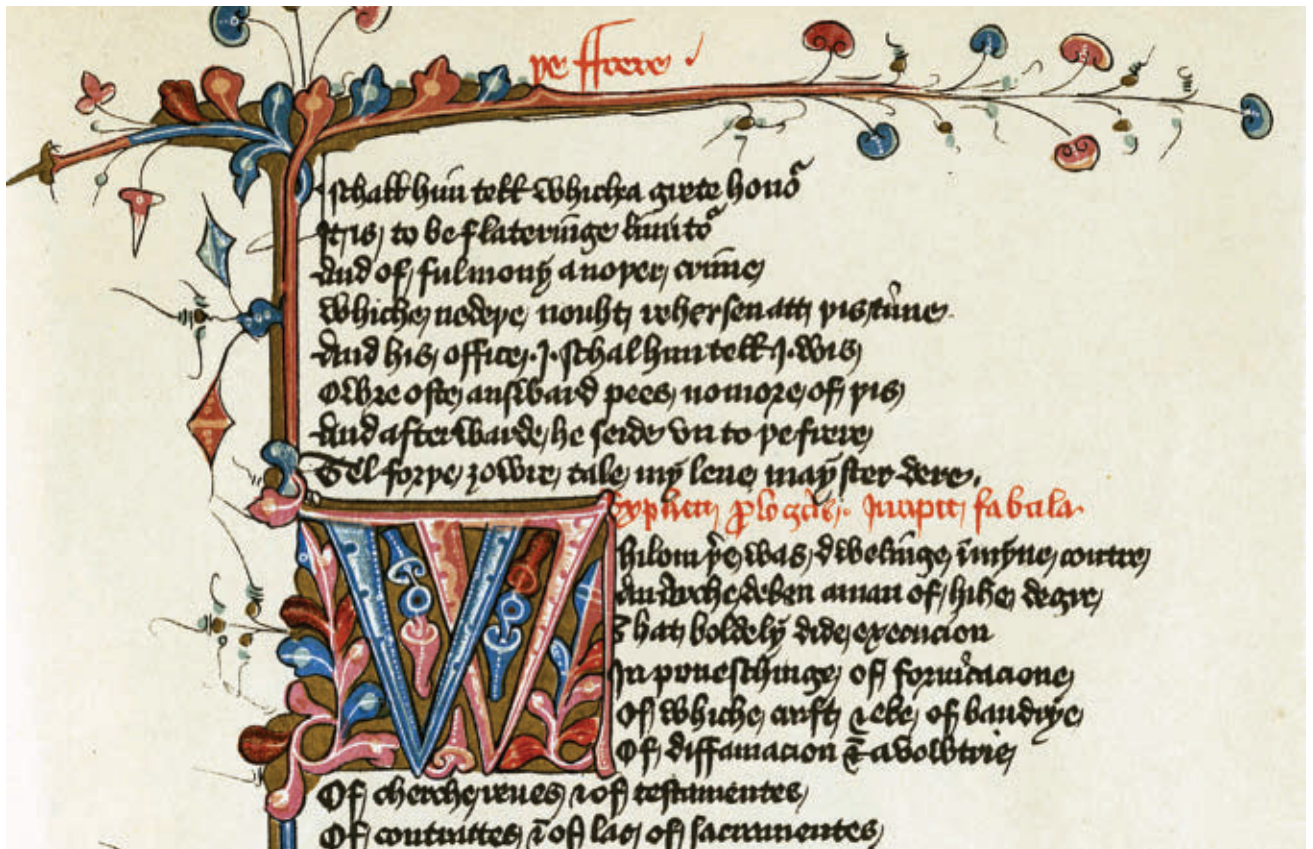 þe ffrere
I schall him tell whiche a grete honor
It is to be flateringe limitor
And of ful mony anoþer crime
Whiche nedeþe nouht rehersen att þis time
And his office I schal him tell I wis
Owre oste answard pees no more of þis
And afterwarde he seide vn to þe frere
Tel forþe ȝowre tale my leue mayster dere
Explicit prologus. Incipit fabula
Whilom þere was dwelinge in myne contre
An archedeken a man of hihe degre
That boldely dide execucion
In poneschinge of fornicacione
Of whiche craft & eke of baudrye
Of diffamacion & avowtrie
Of cherche reues & of testamentes
Of contractes & of lac of sacramentes